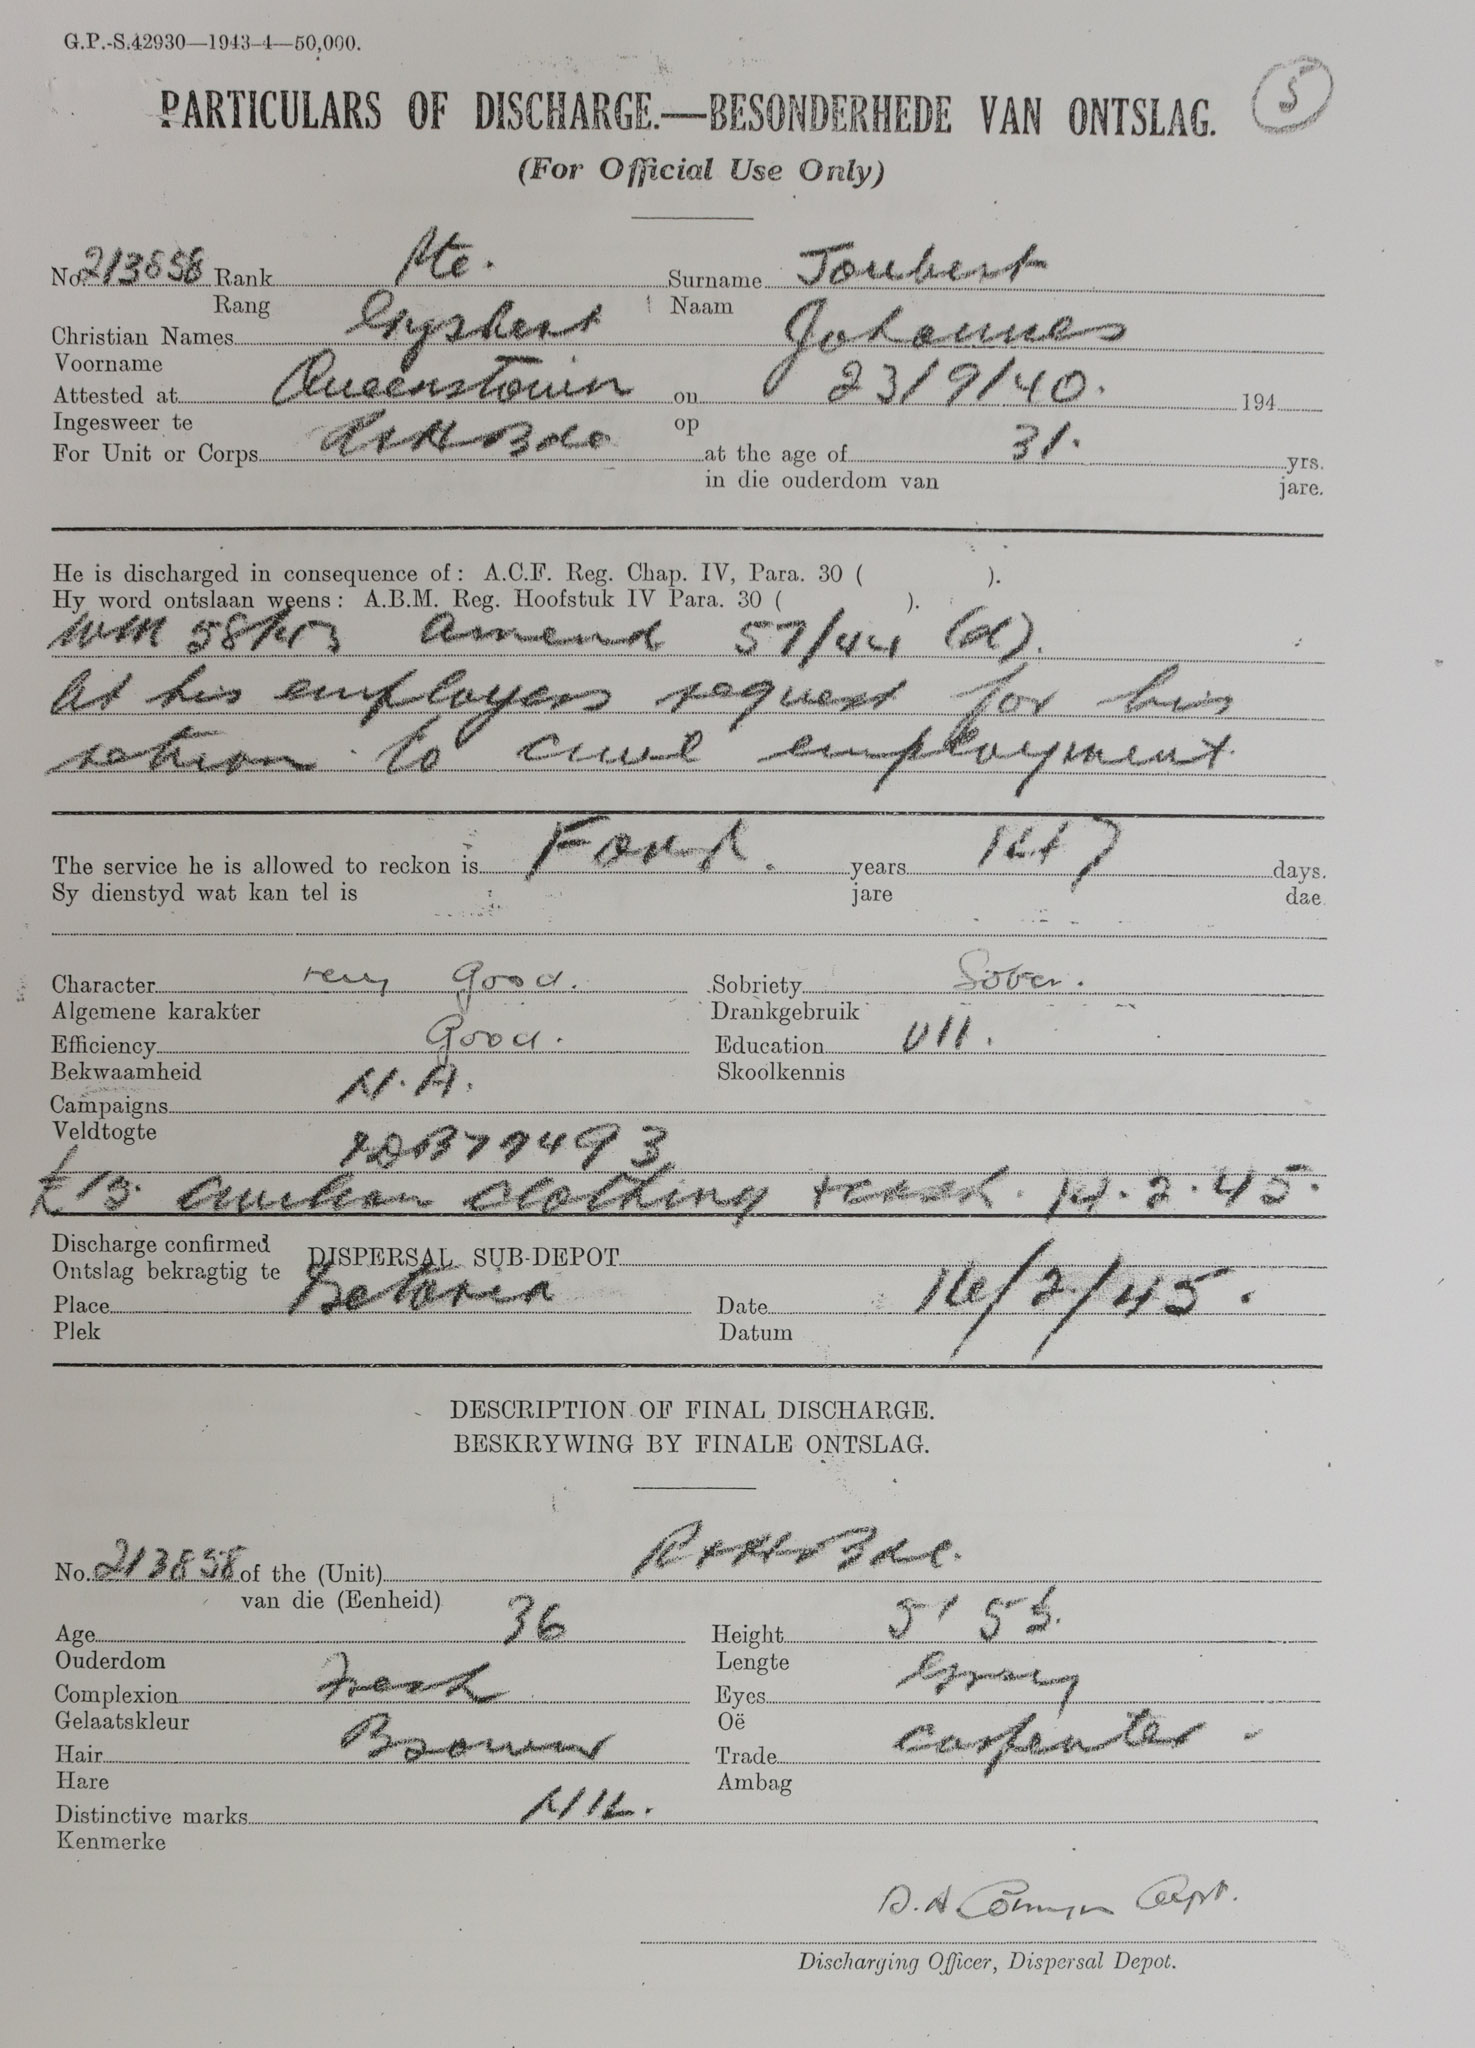 G.P.-S.42930—1943-4—50,000.
5
PARTICULARS OF DISCHARGE.—BESONDERHEDE VAN ONTSLAG.
(For Official Use Only)
No. 213858 Rank Pte. Surname Joubert
Rang Naam
Christian Names Gysbert Johannes
Voorname
Attested at Queenstown on 23/9/40. 194
Ingesweer te op
For Unit or Corps R&H Bde at the age of 31. yrs.
in die ouderdom van jare.
He is discharged in consequence of: A.C.F. Reg. Chap. IV, Para. 30 ( ).
Hy word ontslaan weens: A.B.M. Reg. Hoofstuk IV Para. 30 ( ).
Amend 57/44 (d).
At his employers request for his
return to civil employment.
The service he is allowed to reckon is Four. years 147 days.
Sy dienstyd wat kan tel is jare dae
Character Very Good. Sobriety Sober.
Algemene karakter Drankgebruik
Efficiency Good. Education VII.
Bekwaamheid Skoolkennis
Campaigns N.A.
Veldtogte
77493
£15. civilian clothing 14.2.45.
Discharge confirmed DISPERSAL SUB-DEPOT
Ontslag bekragtig te
Place Pretoria Date 16/2/45.
Plek Datum
DESCRIPTION OF FINAL DISCHARGE.
BESKRYWING BY FINALE ONTSLAG.
No. 213858 of the (Unit) R&H Bde.
van die (Eenheid)
Age 36 Height 5' 5½.
Ouderdom Lengte
Complexion Fresh Eyes Grey
Gelaatskleur Oë
Hair Brown Trade Carpenter.
Hare Ambag
Distinctive marks NIL.
Kenmerke
Capt.
Discharging Officer, Dispersal Depot.